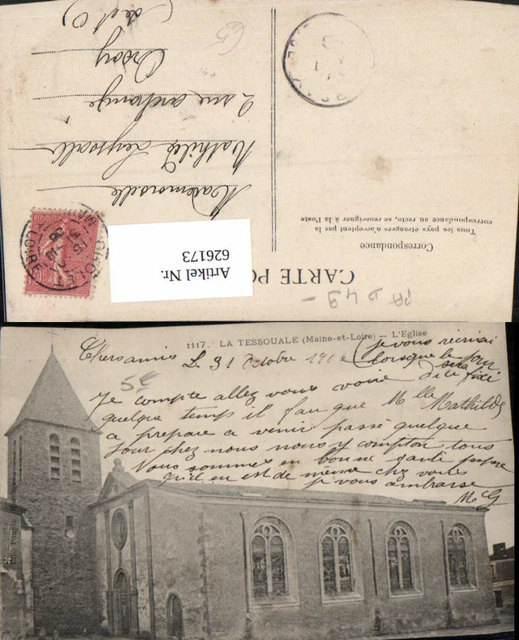 CARTE PO
Correspondance
Tous les pays étrangers n'acceptent pas la
correspondance au recto, se renseigner à la Poste
Artikel Nr.
626173
Mademoiselle
Mathilde
2 rue archange
Orsay
(S et O)
1117. LA TESSOUALE (Maine-et-Loire) — L'Eglise
Chers amis L 31 Octobre
je vous recrirai
lorsque le jour
sera fixé
Je compte allez vous voire d'ici
quelque temps il fau que Mlle Mathilde
a prepare a venir passé quelque
jour chez nous nous y compton tous
Nous sommes en bonne santé j'espere
qu'il en est de meme chez vous
je vous embrasse
M G